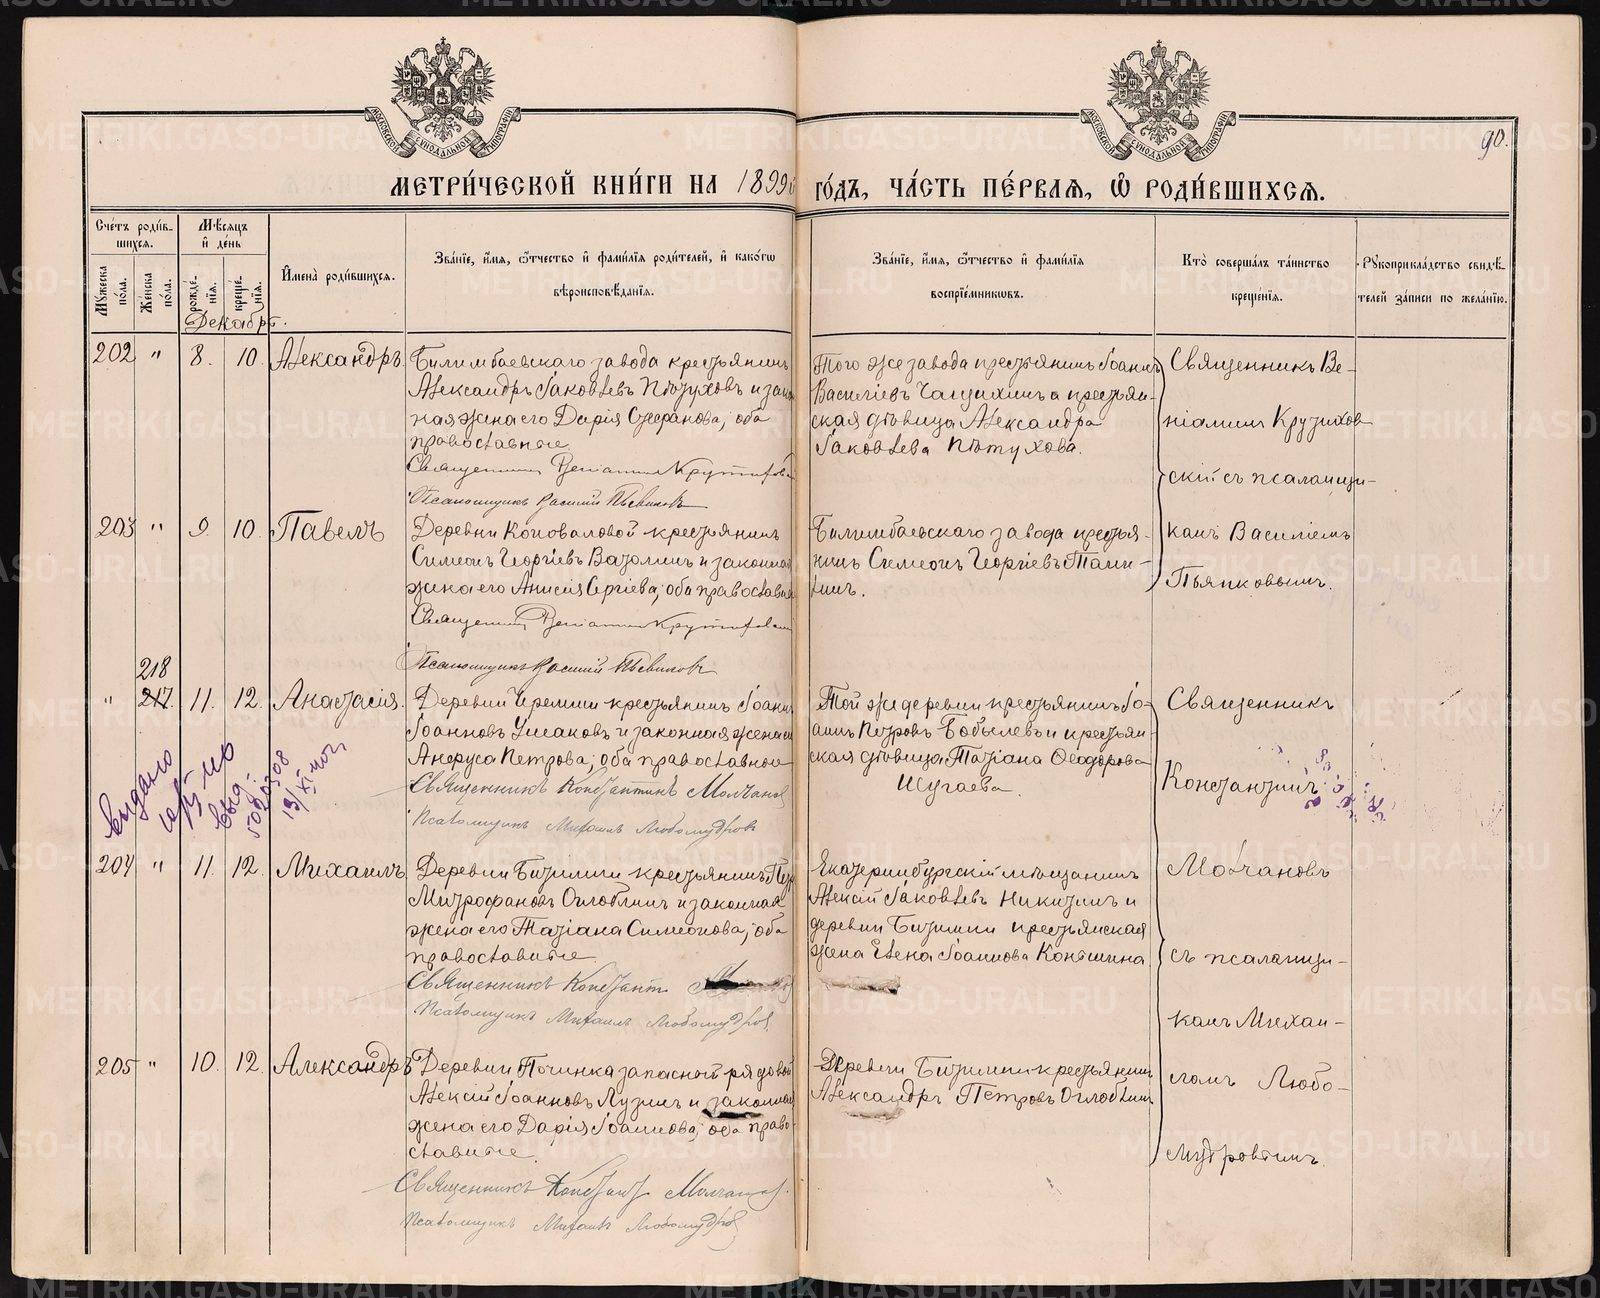 90.
МЕТРИ́ЧЕСКОЙ КНИ́ГИ НА 1899й ГО́ДЪ, ЧА́СТЬ ПЕ́РВАѦ, Ѡ РОДИ́ВШИХСѦ.
Сче́тъ роди́в-
шихся.
Му́жеска по́ла.
Же́нска по́ла.
Мѣ́сяцъ
и де́нь
рожде́-
нїя.
креще́-
нїя.
Декабрь.
И҆мена̀ роди́вшихся.
Зва́нїе, и҆́мя, ѻ҆́тчество и҆ фами́лїя роди́телей, и҆ како́гѡ
вѣроисповѣ́данїя.
Зва́нїе, и҆́мя, ѻ҆́тчество и҆ фами́лїя
воспрїе́мниковъ.
Кто̀ соверша́лъ та́инство
креще́нїя.
Рꙋкоприкла́дство свидѣ́-
телей за́писи по жела́нїю.
202 " 8. 10. Александръ.
Билимбаевскаго завода крестьянинъ
Александръ Іаковлевъ Пѣтуховъ и закон
ная жена его Дарія Стефанова, оба
православные.
Священникъ Веніаминъ
Псаломщикъ Василій Пьянковъ
Того же завода крестьянинъ Іоаннъ
Васильевъ Чащихинъ и крестьян-
ская дѣвица Александра
Іаковлева Пѣтухова.
Священникъ Ве-
ніаминъ
скій съ псаломщи-
комъ Василіемъ
Пьянковымъ.
203 " 9. 10. Павелъ
Деревни Коноваловой крестьянинъ
Симеонъ Георгіевъ и законная
жена его Анисія Сергіева, оба православные
Священникъ Веніаминъ
Псаломщикъ Василій Пьянковъ
Билимбаевскаго завода крестья-
нинъ Симеонъ Георгіевъ
218
" 217. 11. 12. Анастасія.
Деревни Черемши крестьянинъ Іоаннъ
Іоанновъ Ушаковъ и законная жена его
Анфуса Петрова, оба православные
Священникъ Константинъ Молчановъ
Псаломщикъ Михаилъ Любомудровъ
Той же деревни крестьянинъ Іо-
аннъ Петровъ Бобылевъ и крестьян-
ская дѣвица Татіана Ѳеодорова
Шугаева.
Священникъ
Константинъ
Молчановъ
съ псаломщи-
комъ Михаи-
ломъ Любо-
мудровымъ.
выдано
204 " 11. 12. Михаилъ
Деревни Битимки крестьянинъ Петръ
Митрофановъ Оглоблинъ и законная
жена его Татіана Симеонова, оба
православные
Священникъ Констант
Псаломщикъ Михаилъ Любомудровъ
Екатеринбургскій мѣщанинъ
Алексій Іаковлевъ Никитинъ и
деревни Битимки крестьянская
жена Елена Іоаннова Конышина
205 " 10. 12. Александръ
Деревни Починка запасной рядовой
Алексій Іоанновъ Лузинъ и законная
жена его Дарія Іоаннова, оба право-
славные.
Священникъ Констант Молчановъ.
Псаломщикъ Михаилъ Любомудровъ
Деревни Битимки крестьянинъ
Александръ Петровъ Оглоблинъ